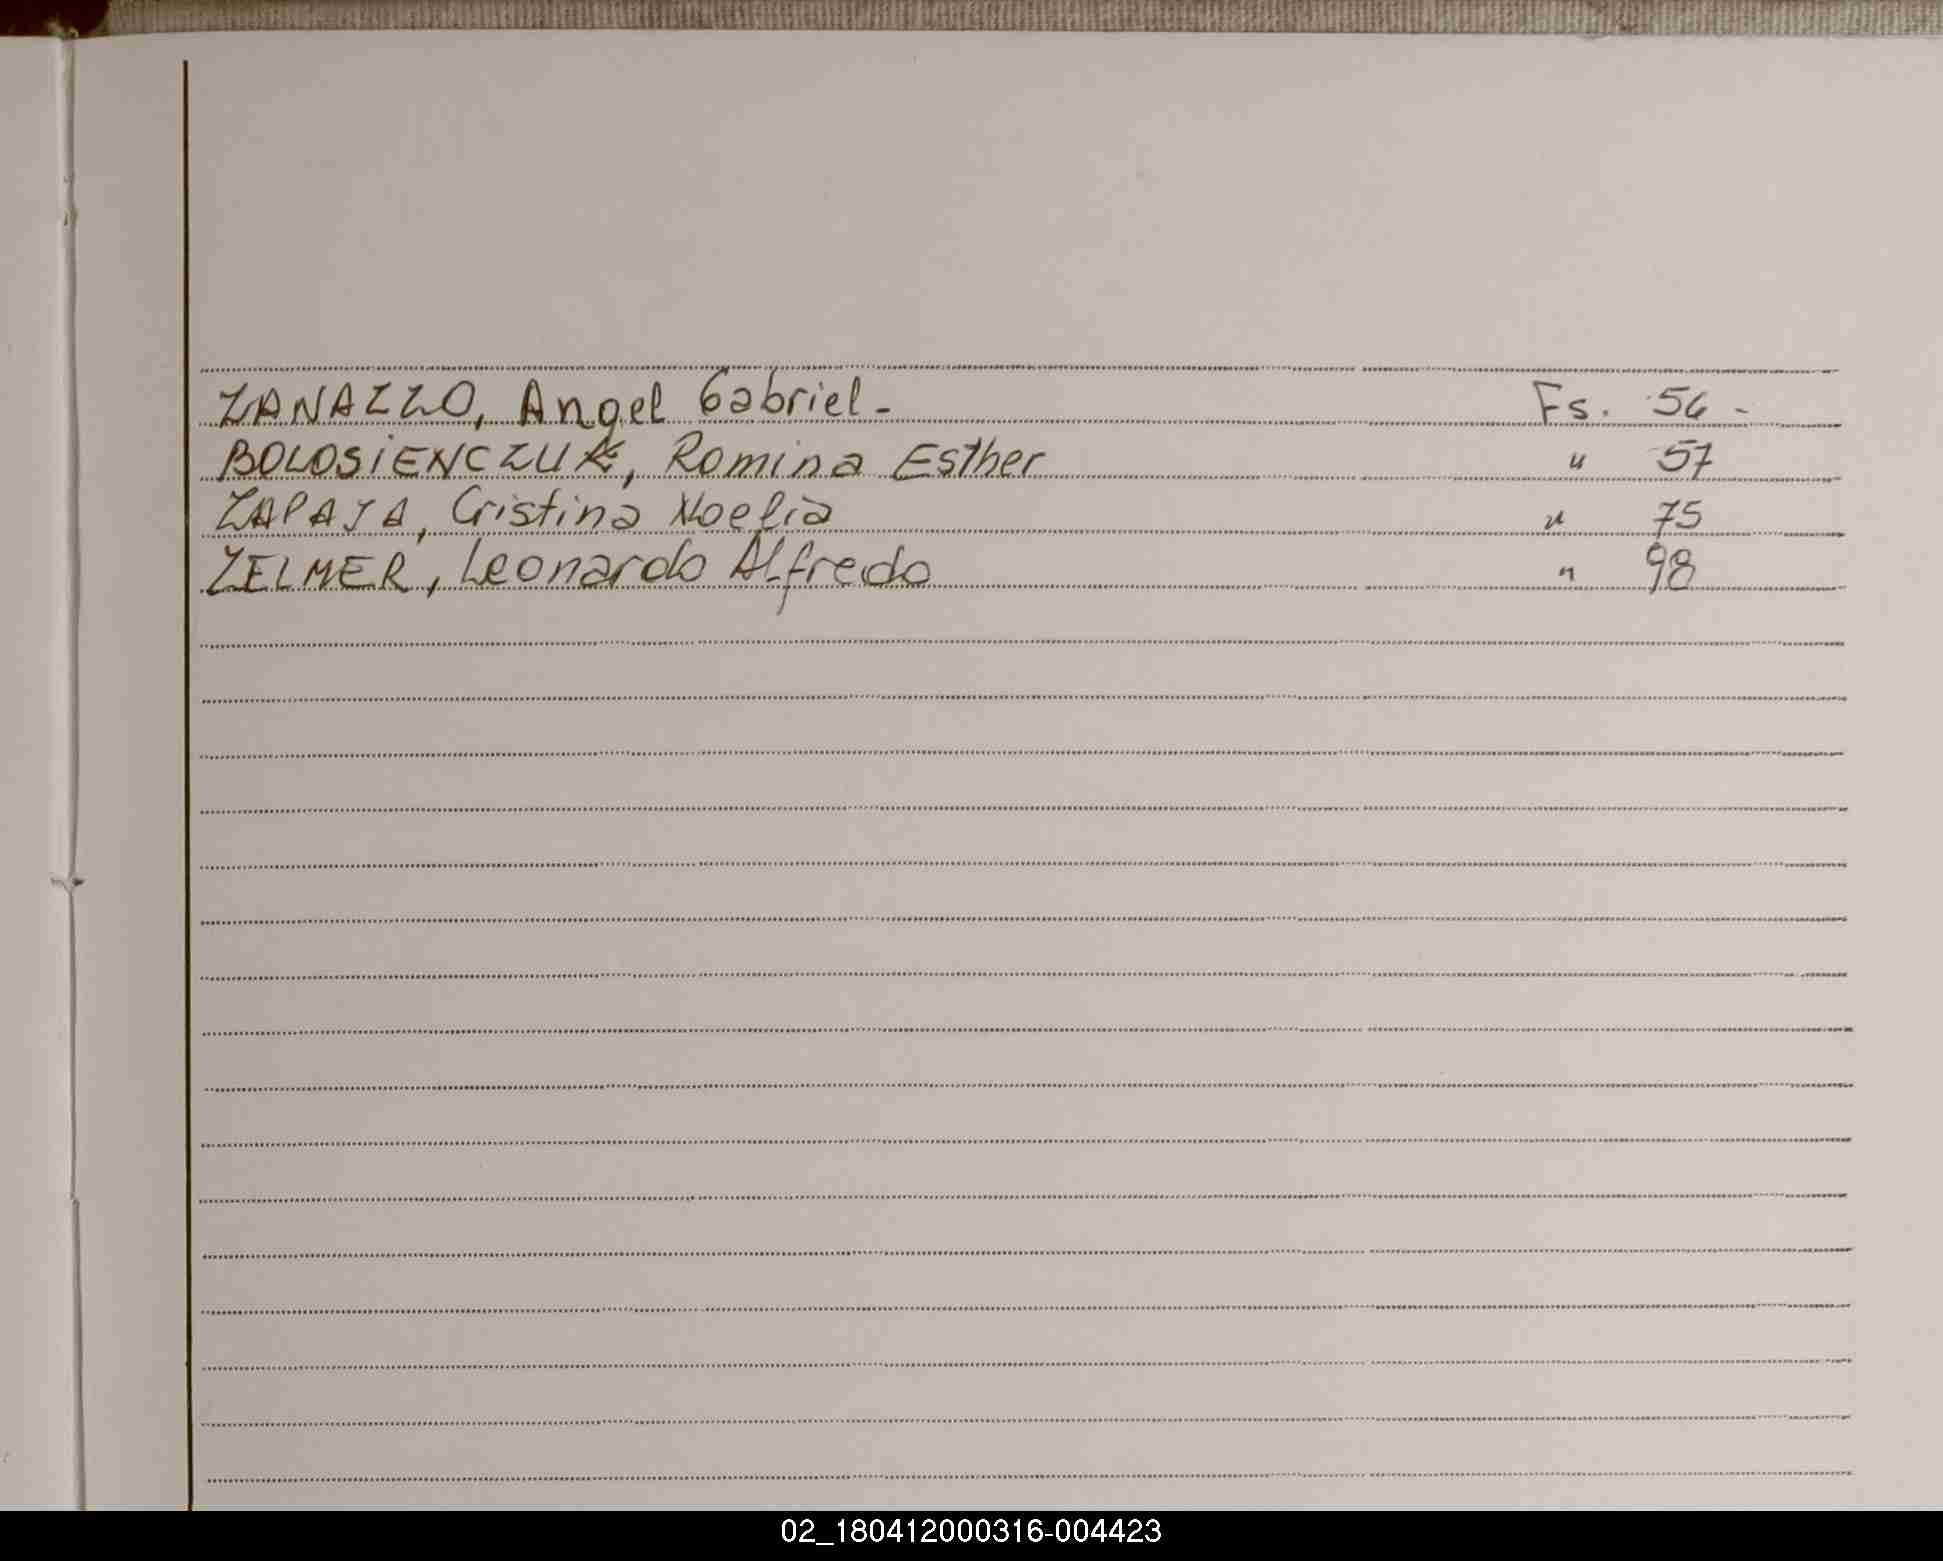 ZANAZZO, Angel Gabriel.- Fs. 56 -
BOLOSIENCZUK, Romina Esther " 57
ZAPAJA, Cristina Noelia " 75
ZELMER, Leonardo Alfredo " 98
02_180412000316-004423